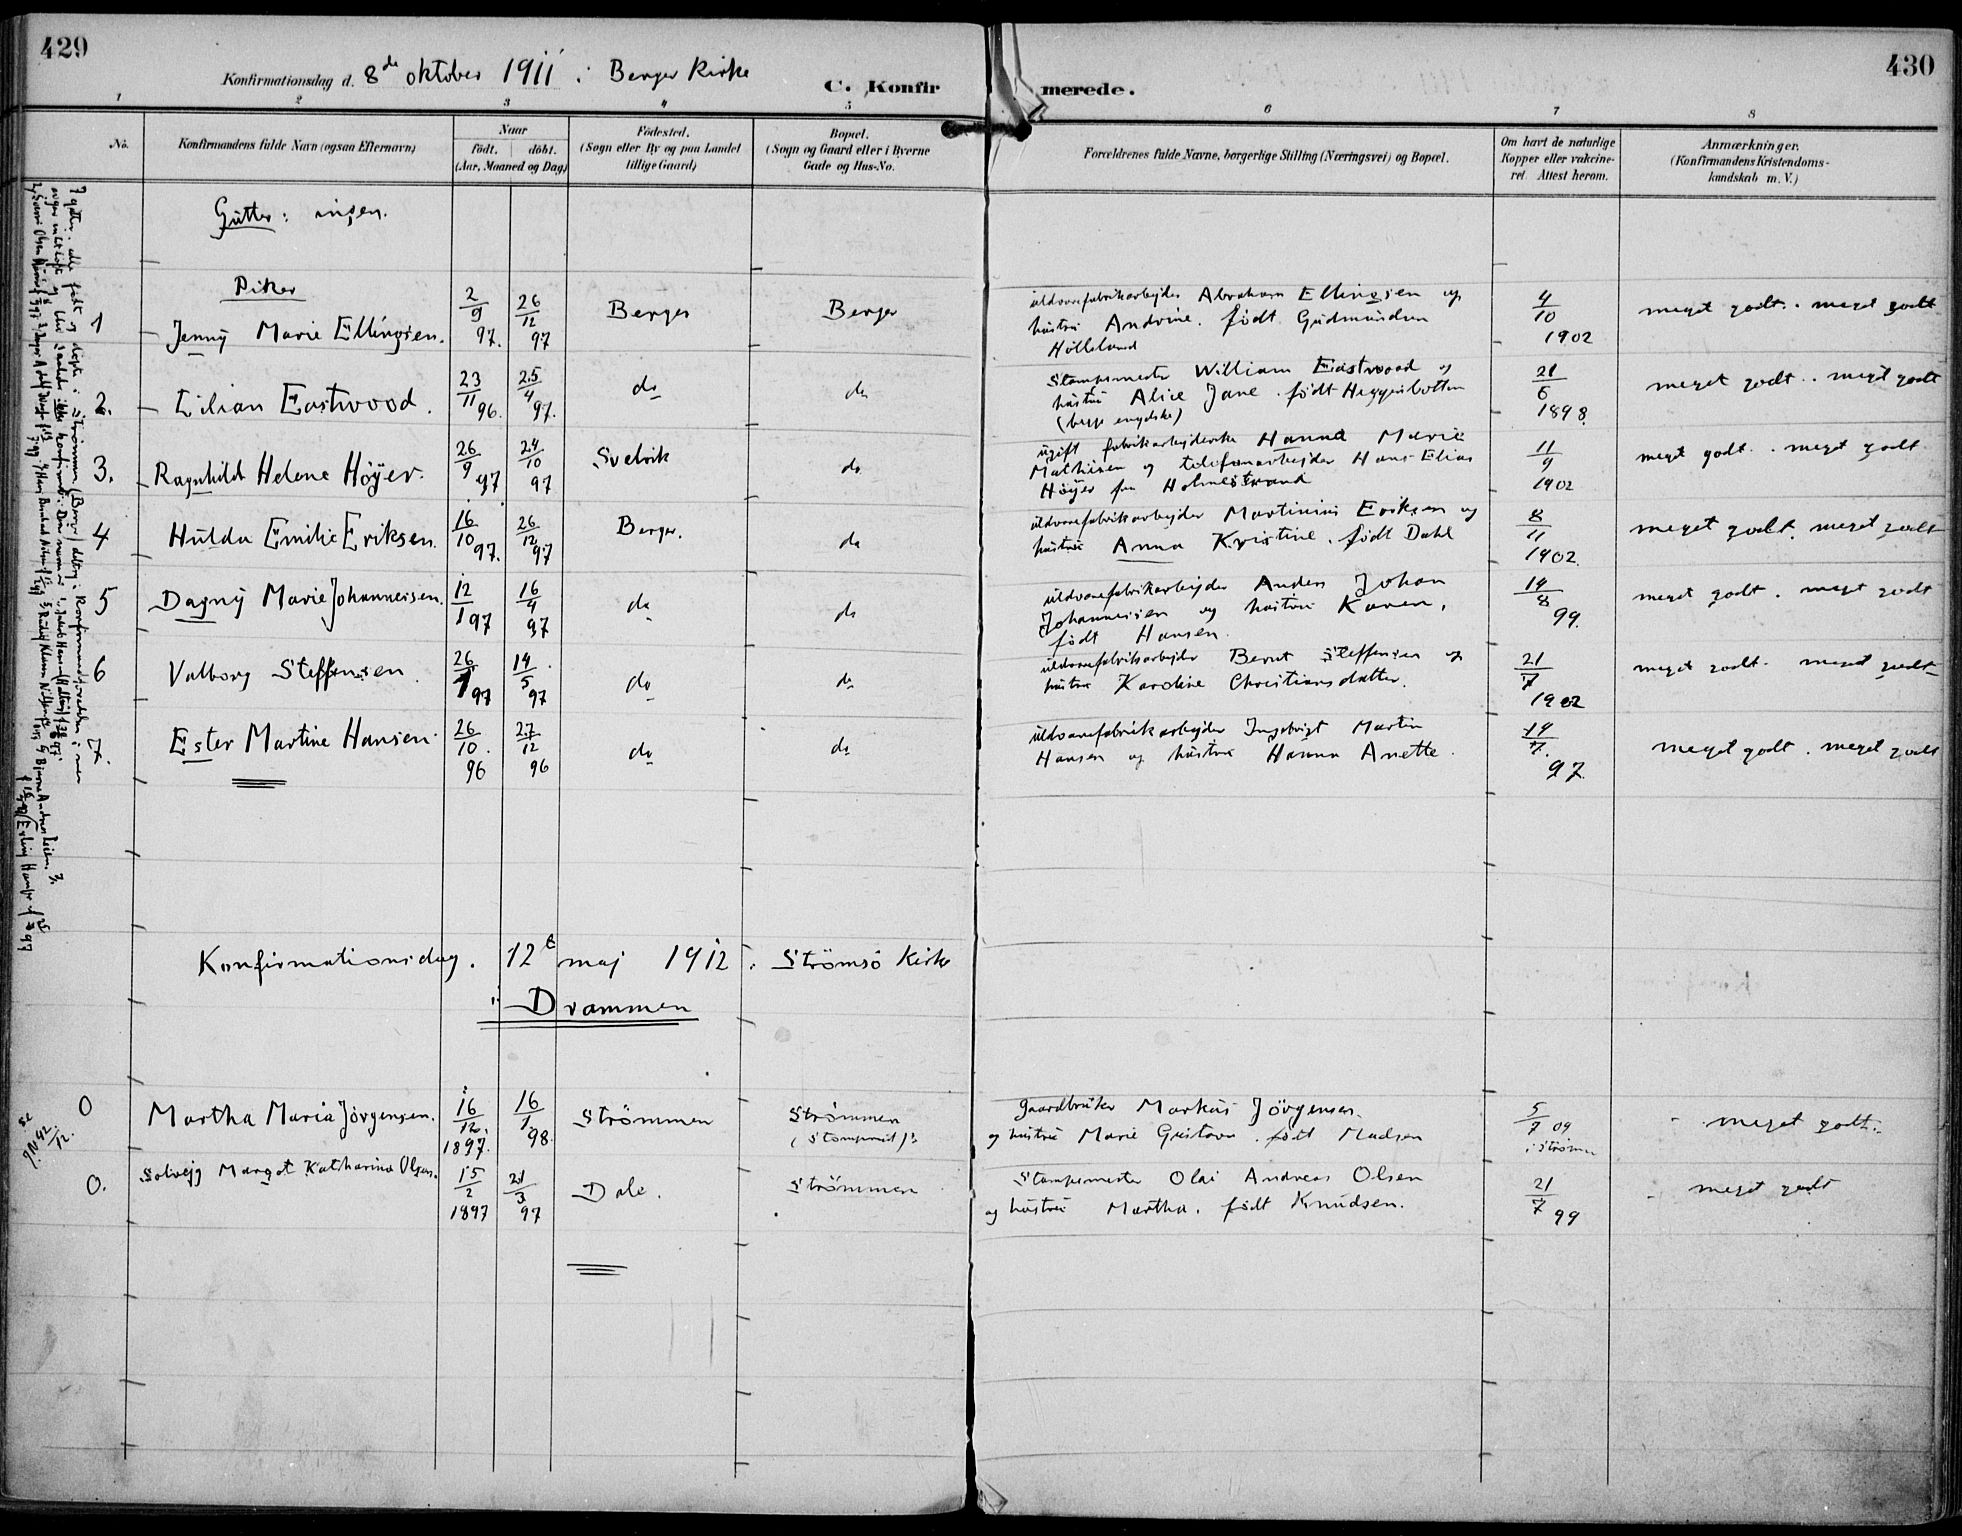 429
430
Konfirmationsdag d. 8de oktober 1911 i Berger Kirke
C. Konfir merede.
1 2 3 4 5 6 7 8
No.
Konfirmandens fulde Navn (ogsaa Efternavn)
Naar
födt. döbt.
(Aar, Maaned og Dag)
Födested.
(Sogn eller By og paa Landet
tillige Gaard)
Bopæl.
(Sogn og Gaard eller i Byerne
Gade og Hus-No.
Forældrenes fulde Navne, borgerlige Stilling (Næringsvei) og Bopæl.
Om havt de naturlige
Kopper eller vakcine-
ret. Attest herom.
Anmærkninger.
(Konfirmandens Kristendoms-
kundskab m. V.)
Gutter: ingen.
Piker
1 Jenny Marie Ellingsen. 2/9 97. 26/12 97 Berger Berger
uldvarefabrikarbejder Abraham Ellingsen og
hustru Andrine. födt Gudmundsen
Hölleland
4/10 1902 meget godt. meget godt
2. Lilian Eastwood. 23/11 96. 25/4 97. do do
Stampemester William Eastwood og
hustru Alice Jane födt Heggenbotten
(begge engelske)
21/6 1898. meget godt. meget godt
3. Ragnhild Helene Höyer. 26/9 97 24/10 97 Svelvik do
ugift fabrikarbejderske Hanna Marie
Mathisen og telefonarbejder Hans Elias
Höyer fra Holmestrand
11/9 1902 meget godt. meget godt
4 Hulda Emilie Eriksen. 16/10 97. 26/12 97 Berger. do
uldvarefabrikarbejder Martinius Eriksen og
hustru Anna Kristine. födt Dahl
8/11 1902. meget godt. meget godt
5 Dagny Marie Johannesen. 12/1 97 16/4 97 do do
uldvarefabrikarbejder Anders Johan
Johannesen og hustru Karen,
födt Hansen.
14/8 99. meget godt. meget godt
6 Valborg Steffensen. 26/1 97 14/5 97 do do
uldvarefabrikarbejder Bernt Steffensen og
hustru Karoline Christiansdatter.
21/7 1902 meget godt. meget godt
7. Ester Martine Hansen. 26/10. 96 27/12 96 do do
uldvarefabrikarbejder Ingebrigt Martin
Hansen og hustru Hanna Anette.
14/7. 97. meget godt. meget godt
Konfirmationsdag. 12te maj 1912 i Strömsö Kirke
i Drammen
0 Martha Maria Jörgensen. 16/12. 1897. 16/1 98. Strömmen Strömmen
Gaardbruker Markus Jörgensen.
og hustru Marie Gustava. födt Madsen
5/7 09 i Strömm meget godt.
0. Solvejg Margot Katharina Olsen. 15/2 1897 21/3 97 Dale. Strömmen
Stampemester Olai Andreas Olsen
og hustru Martha. födt Knudsen.
21/7 99 meget godt